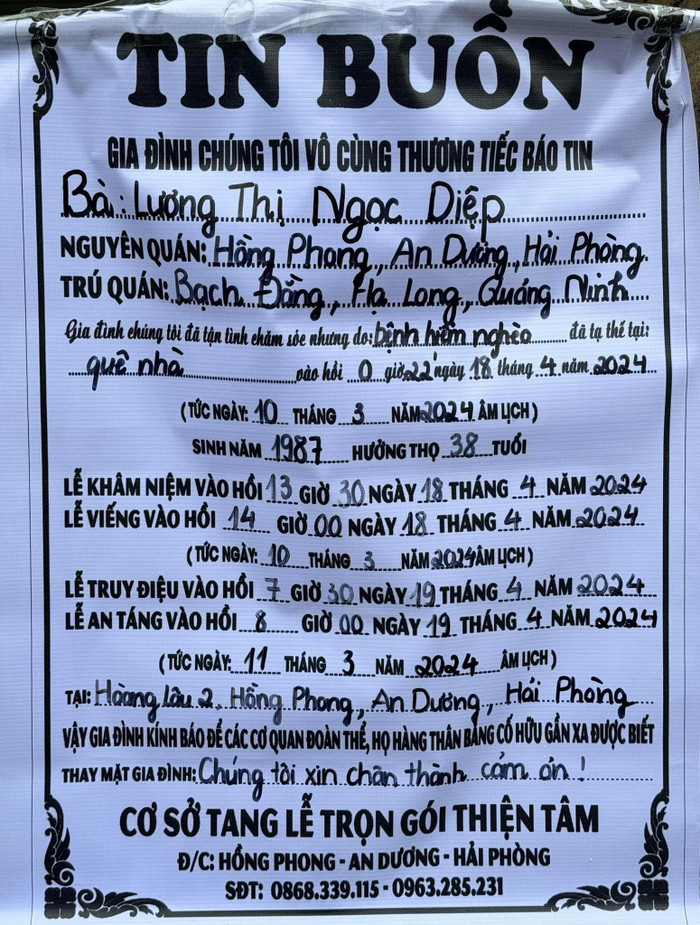 TIN BUỒN
GIA ĐÌNH CHÚNG TÔI VÔ CÙNG THƯƠNG TIẾC BÁO TIN
Bà: Lương Thị Ngọc Diệp
NGUYÊN QUÁN: Hồng Phong, An Dương, Hải Phòng.
TRÚ QUÁN: Bạch Đằng, Hạ Long, Quảng Ninh
Gia đình chúng tôi đã tận tình chăm sóc nhưng do: bệnh hiểm nghèo đã tạ thế tại:
quê nhà vào hồi 0 giờ 22' ngày 18 tháng 4 năm 2024
(TỨC NGÀY: 10 THÁNG 3 NĂM 2024 ÂM LỊCH)
SINH NĂM 1987 HƯỞNG THỌ 38 TUỔI
LỄ KHÂM NIỆM VÀO HỒI 13 GIỜ 30 NGÀY 18 THÁNG 4 NĂM 2024
LỄ VIẾNG VÀO HỒI 14 GIỜ 00 NGÀY 18 THÁNG 4 NĂM 2024
(TỨC NGÀY: 10 THÁNG 3 NĂM 2024 ÂM LỊCH)
LỄ TRUY ĐIỆU VÀO HỒI 7 GIỜ 30 NGÀY 19 THÁNG 4 NĂM 2024
LỄ AN TÁNG VÀO HỒI 8 GIỜ 00 NGÀY 19 THÁNG 4 NĂM 2024
(TỨC NGÀY: 11 THÁNG 3 NĂM 2024 ÂM LỊCH)
TẠI: Hoàng Lâu 2, Hồng Phong, An Dương, Hải Phòng
VẬY GIA ĐÌNH KÍNH BÁO ĐỂ CÁC CƠ QUAN ĐOÀN THỂ, HỌ HÀNG THÂN BẰNG CỐ HỮU GẦN XA ĐƯỢC BIẾT
THAY MẶT GIA ĐÌNH: Chúng tôi xin chân thành cảm ơn!
CƠ SỞ TANG LỄ TRỌN GÓI THIỆN TÂM
Đ/C: HỒNG PHONG - AN DƯƠNG - HẢI PHÒNG
SĐT: 0868.339.115 - 0963.285.231